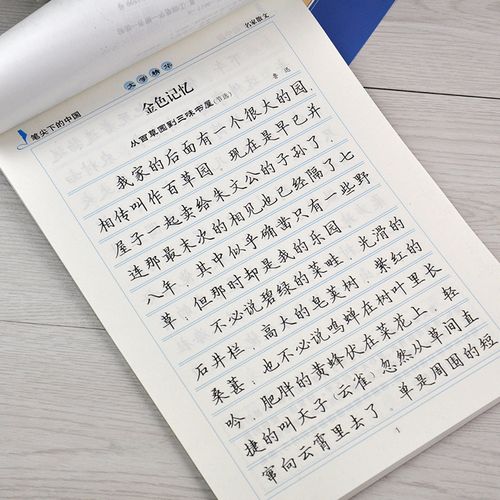 笔尖下的中国
名家散文
文学精华
金色记忆
从百草园到三味书屋(节选)
鲁迅
我家的后面有一个很大的园,
相传叫作百草园。现在是早已并
屋子一起卖给朱文公的子孙了,
连那最末次的相见也已经隔了七
八年,其中似乎确凿只有一些野
草;但那时却是我的乐园。
不必说碧绿的菜畦,光滑的
石井栏,高大的皂荚树,紫红的
桑葚;也不必说鸣蝉在树叶里长
吟,肥胖的黄蜂伏在菜花上,轻
捷的叫天子(云雀)忽然从草间直
窜向云霄里去了。单是周围的短
1